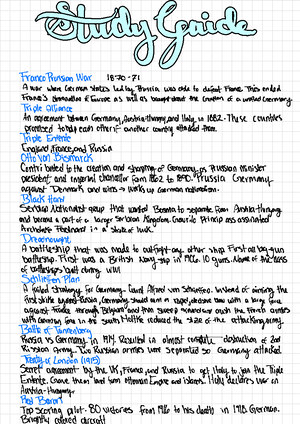 Study Guide
Franco Prussian War 1870-71
A war where German states led by Prussia was able to defeat France. This ended
France's domination of Europe as well as brought about the creation of a unified Germany.
Triple Alliance
An agreement between Germany, Austria-Hungary, and Italy in 1882. These countries
promised to help each other if another country attacked them.
Triple Entente
England, France, and Russia
Otto von Bismarck
Contributed to the creation and shaping of Germany as Prussian minister
president and imperial chancellor from 1862 to 1890. Prussia Germany
against Denmark and wins → works up German nationalism.
Black Hand
Serbian Nationalist group that wanted Bosnia to separate from Austria-Hungary
and become a part of a larger Serbian Kingdom. Gavrilo Princip assassinated
Archduke Ferdinand in a state of work.
Dreadnought
A battleship that was made to outfight any other ship. First all big-gun
battleship. First was a British Navy ship in 1906. 10 guns. None of the
battleships built during WWI
Schlieffen Plan
A failed strategy for Germany. Count Alfred von Schlieffen. Instead of aiming the
first strike against Russia, Germany should aim a rapid, decisive blow with a large force
against France through Belgium and then sweep around and crush the French armies
Moltke reduced the size of the attacking army.
Battle of Tannenberg
Russia vs Germany in 1914. Resulted in almost complete destruction of 2nd
Russian Army. Two Russian armies were separated so Germany attacked.
Treaty of London (1915)
Secret agreement by the UK, France, and Russia to get Italy to join the Triple
Entente. Gave them land from Ottoman Empire and Islands. Italy declares war on
Austria-Hungary.
Red Baron
Top scoring pilot - 80 victories from 1916 to his death in 1918. German.
Brightly colored aircraft